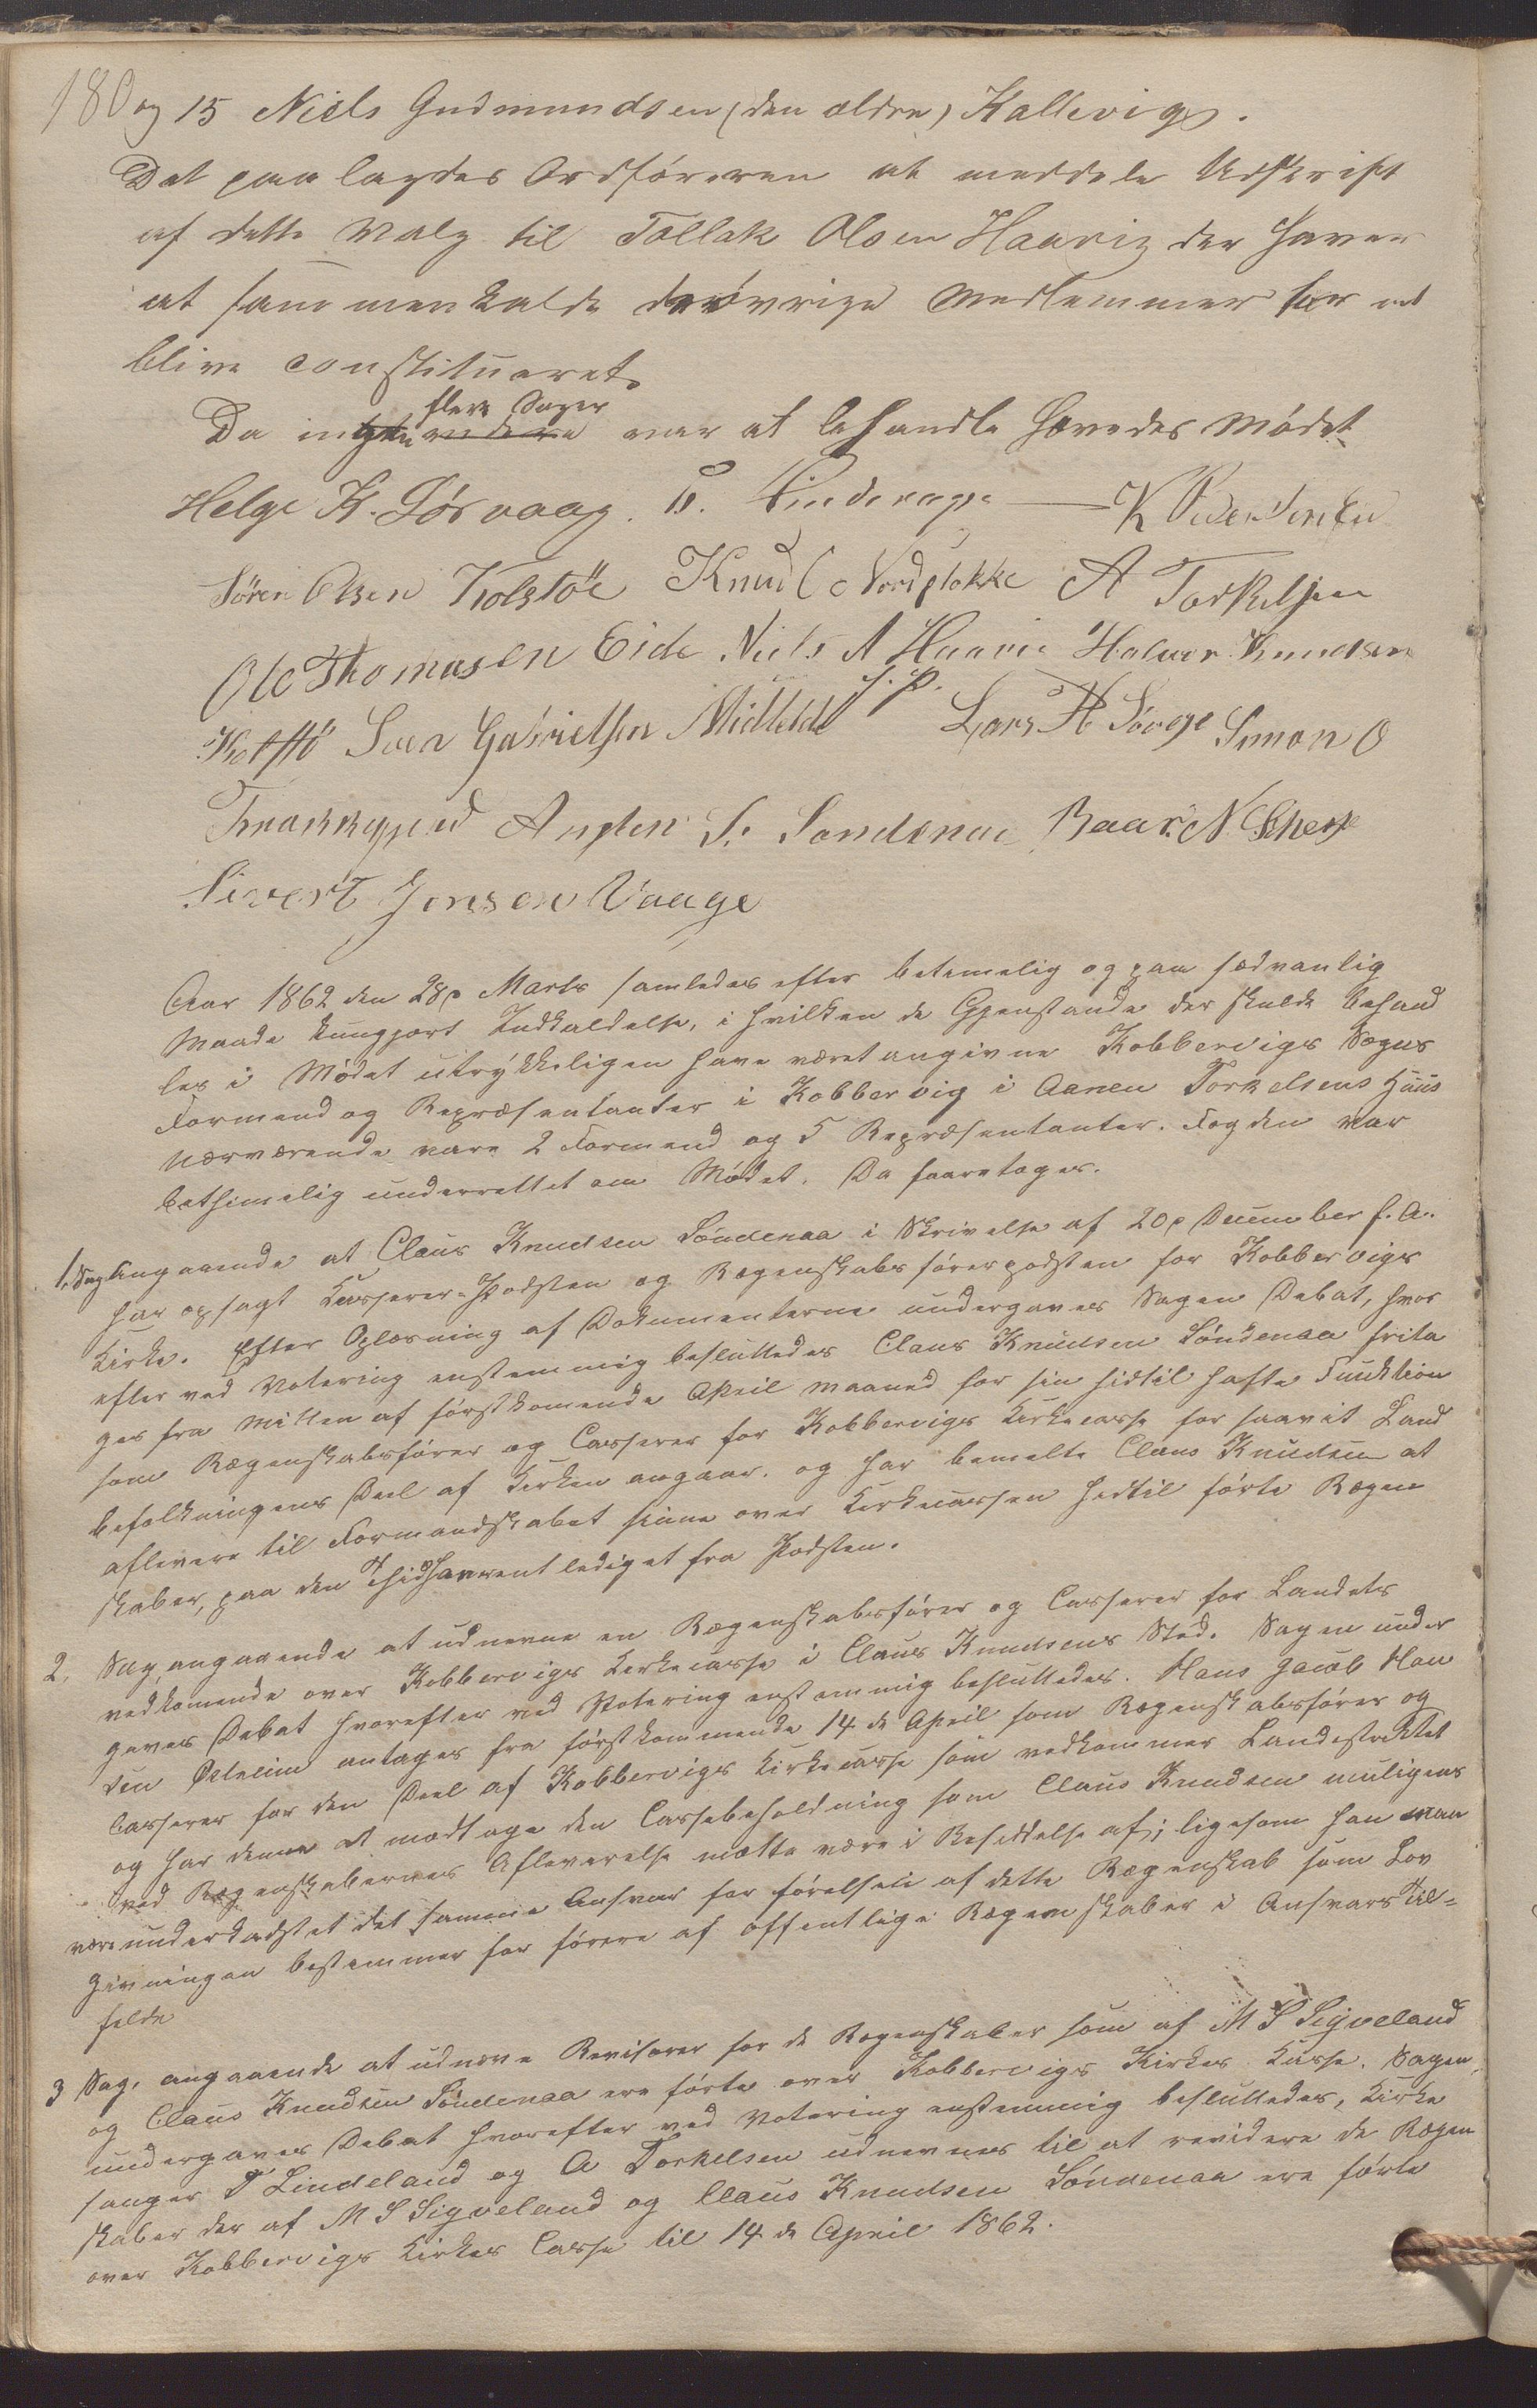 180 og 15 Niels Gudmundsen (den ældre) Kallevig.
Det paalagdes Ordføreren at meddele Udskrift
af dette Valg til Tollak Olsen Haavig der haver
at sammenkalde de øvrige Medlemmer for at
blive constitueret.
flere Sager
Da ingen var at behandle hævedes Mødet
Helge K. Sørvaag. K Pedersen
Sören Olsen Kolstöe Knud C Nordstokke A Torkelsen
Ole Thomasen Eide Niels A Haavig Halvor Knudsen
Sven Gabrielsen Midtveldt S. P. Lars H Sövge Simon O
Sivert Jonsen Vaage
Aar 1862 den 28de Marts samledes efter betimelig og paa sædvanlig
Maade kungjort Indkaldelse, i hvilken de Gjenstande der skulde behand
les i Mødet utrykkeligen have været angivne Kobbervigs Sogns
Formænd og Repræsentanter i Kobbervig i Aanen Torkelsens Huus
nærværende vare 2 Formænd og 5 Repræsentanter. Fogden var
bethimelig underrettet om Mødet. Da foaretoges.
1. Sag Angaaende at Claus Knudsen Søndenaa i Skrivelse af 20de December f. A.
har opsagt Kasserer-Posten og Regenskabsførerposten for Kobbervigs
Kirke. Efter Oplæsning af Dokumenterne undergaves Sagen Debat, hvor
efter ved Votering enstemmig besluttedes Claus Knudsen Søndenaa frita
ges fra Mitten af førstkomende April maaned for sin hidtil hafte Funktion
som Regenskabsfører og Casserer for Kobbervigs Kirkecasse for saavit Land
befolkningens Deel af Kirken angaar. og har bemelte Claus Knudsen at
aflevere til Formandskabet sinne over Kirkecassen hidtil førte Regen
skaber, paa den Thid han entlediget fra Posten.
2. Sag, angaaende at udnevne en Regenskabsfører og Casserer for Landets
vedkomende over Kobbervigs Kirkecasse i Claus Knudsens Sted. Sagen under
gaves Debat hvorefter ved Votering enstemmig besluttedes. Hans Jacob Han
sen antages fra førstkommende 14 de April som Regenskabsfører og
Casserer for den Deel af Kobbervigs Kirkecasse som vedkommer Landdistriktet
og har denne at modtage den Cassebeholdning som Claus Knudsen muligens
ved Regenskabernes Afleverelse maatte være i Besiddelse af; ligesom han maa
være underkadstet det samme Ansvar for førelsen af dette Regenskab som Lov
givningen bestemmer for førere af offentlige Regenskaber i Ansvars Til-
felde
3 Sag, angaaende at udnevne Revisorer for de Regenskaber som af M S Sigveland
og Claus Knudsen Søndenaa ere førte over Kobbervigs Kirkes Kasse. Sagen
undergaves Debat hvorefter ved Votering enstemmig besluttedes, Kirke
sanger T Lindeland og A Torkelsen udnevnes til at revidere de Regen
skaber der af M S Sigveland og Claus Knudsen Søndenaa ere førte
over Kobbervigs Kirkes Casse til 14 de April 1862.